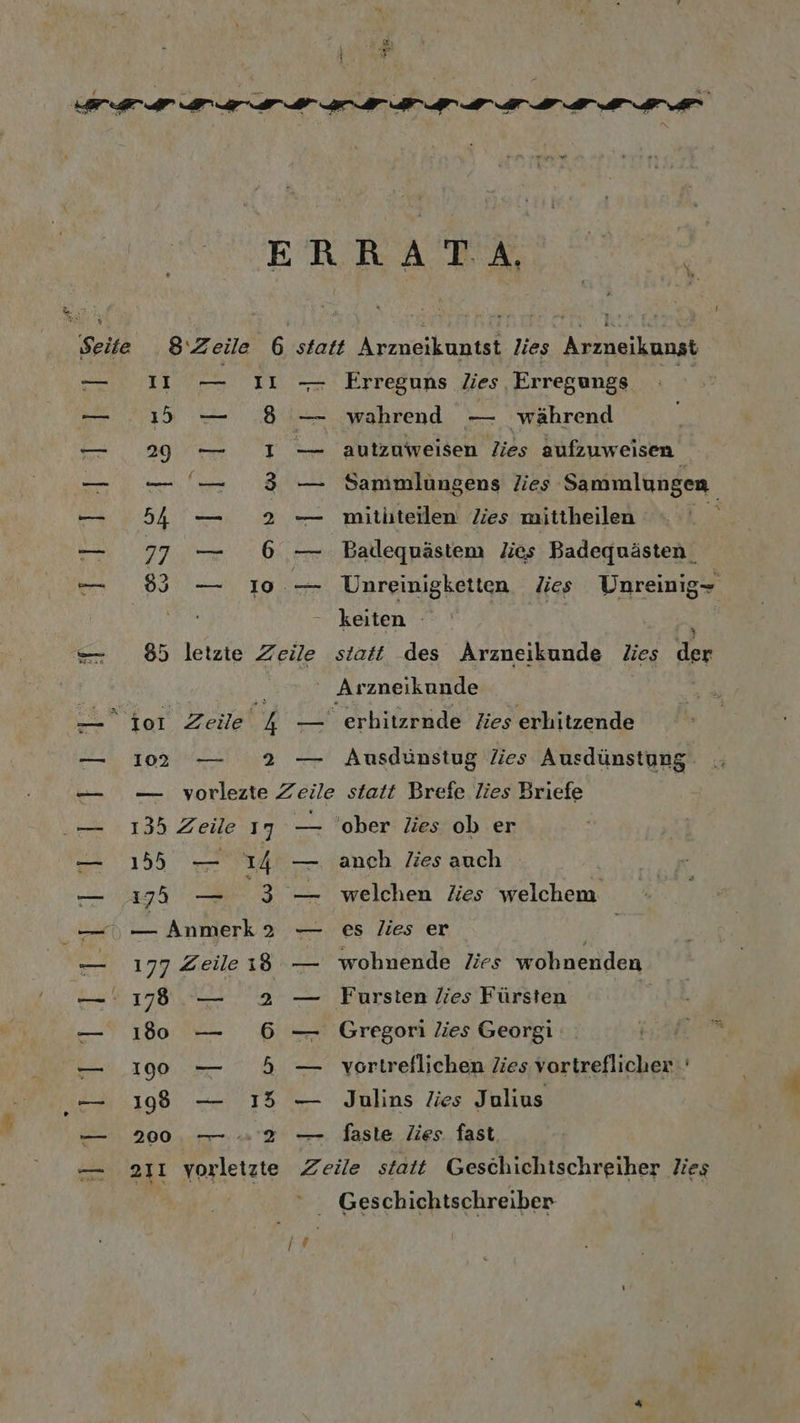 ERRATA.
Seite 8 Zeile 6 statt Arzneikuntst lies Arzneikunst
— 11 — 11 — Erreguns lies Erregungs
— 15 — 8 — wahrend — während
— 29 — 1 — autzuweisen lies aufzuweisen
— — — 3 — Sammlungens lies Sammlungen
— 54 — 2 — mithteilen lies mittheilen
— 77 — 6 — Badequästem lies Badequästen
— 83 — 10 — Unreinigketten lies Unreinig-
keiten
— 85 letzte Zeile statt des Arzneikunde lies der
Arzneikunde
— 101 Zeile 4 — erhitzrnde lies erhitzende
— 102 — 2 — Ausdünstug lies Ausdünstung
— — vorlezte Zeile statt Brefe lies Briefe
— 135 Zeile 17 — ober lies ob er
— 155 — 14 — anch lies auch
— 175 — 3 — welchen lies welchem
— — Anmerk 2 — es lies er
— 177 Zeile 18 — wohnende lies wohnenden
— 178 — 2 — Fursten lies Fürsten
— 180 — 6 — Gregori lies Georgi
— 190 — 5 — vortreflichen lies vortreflicher
— 198 — 15 — Julins lies Julius
— 200 — 2 — faste lies fast
— 211 vorletzte Zeile statt Geschichtschreiher lies
Geschichtschreiber